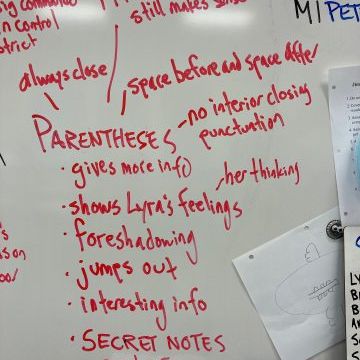 still makes sense
n control
strict
MI PET
always close
space before and space after
no interior closing
punctuation
PARENTHESES
· gives more info
her thinking
· shows Lyra's feelings
· foreshadowing
· jumps out
· interesting info
· SECRET NOTES